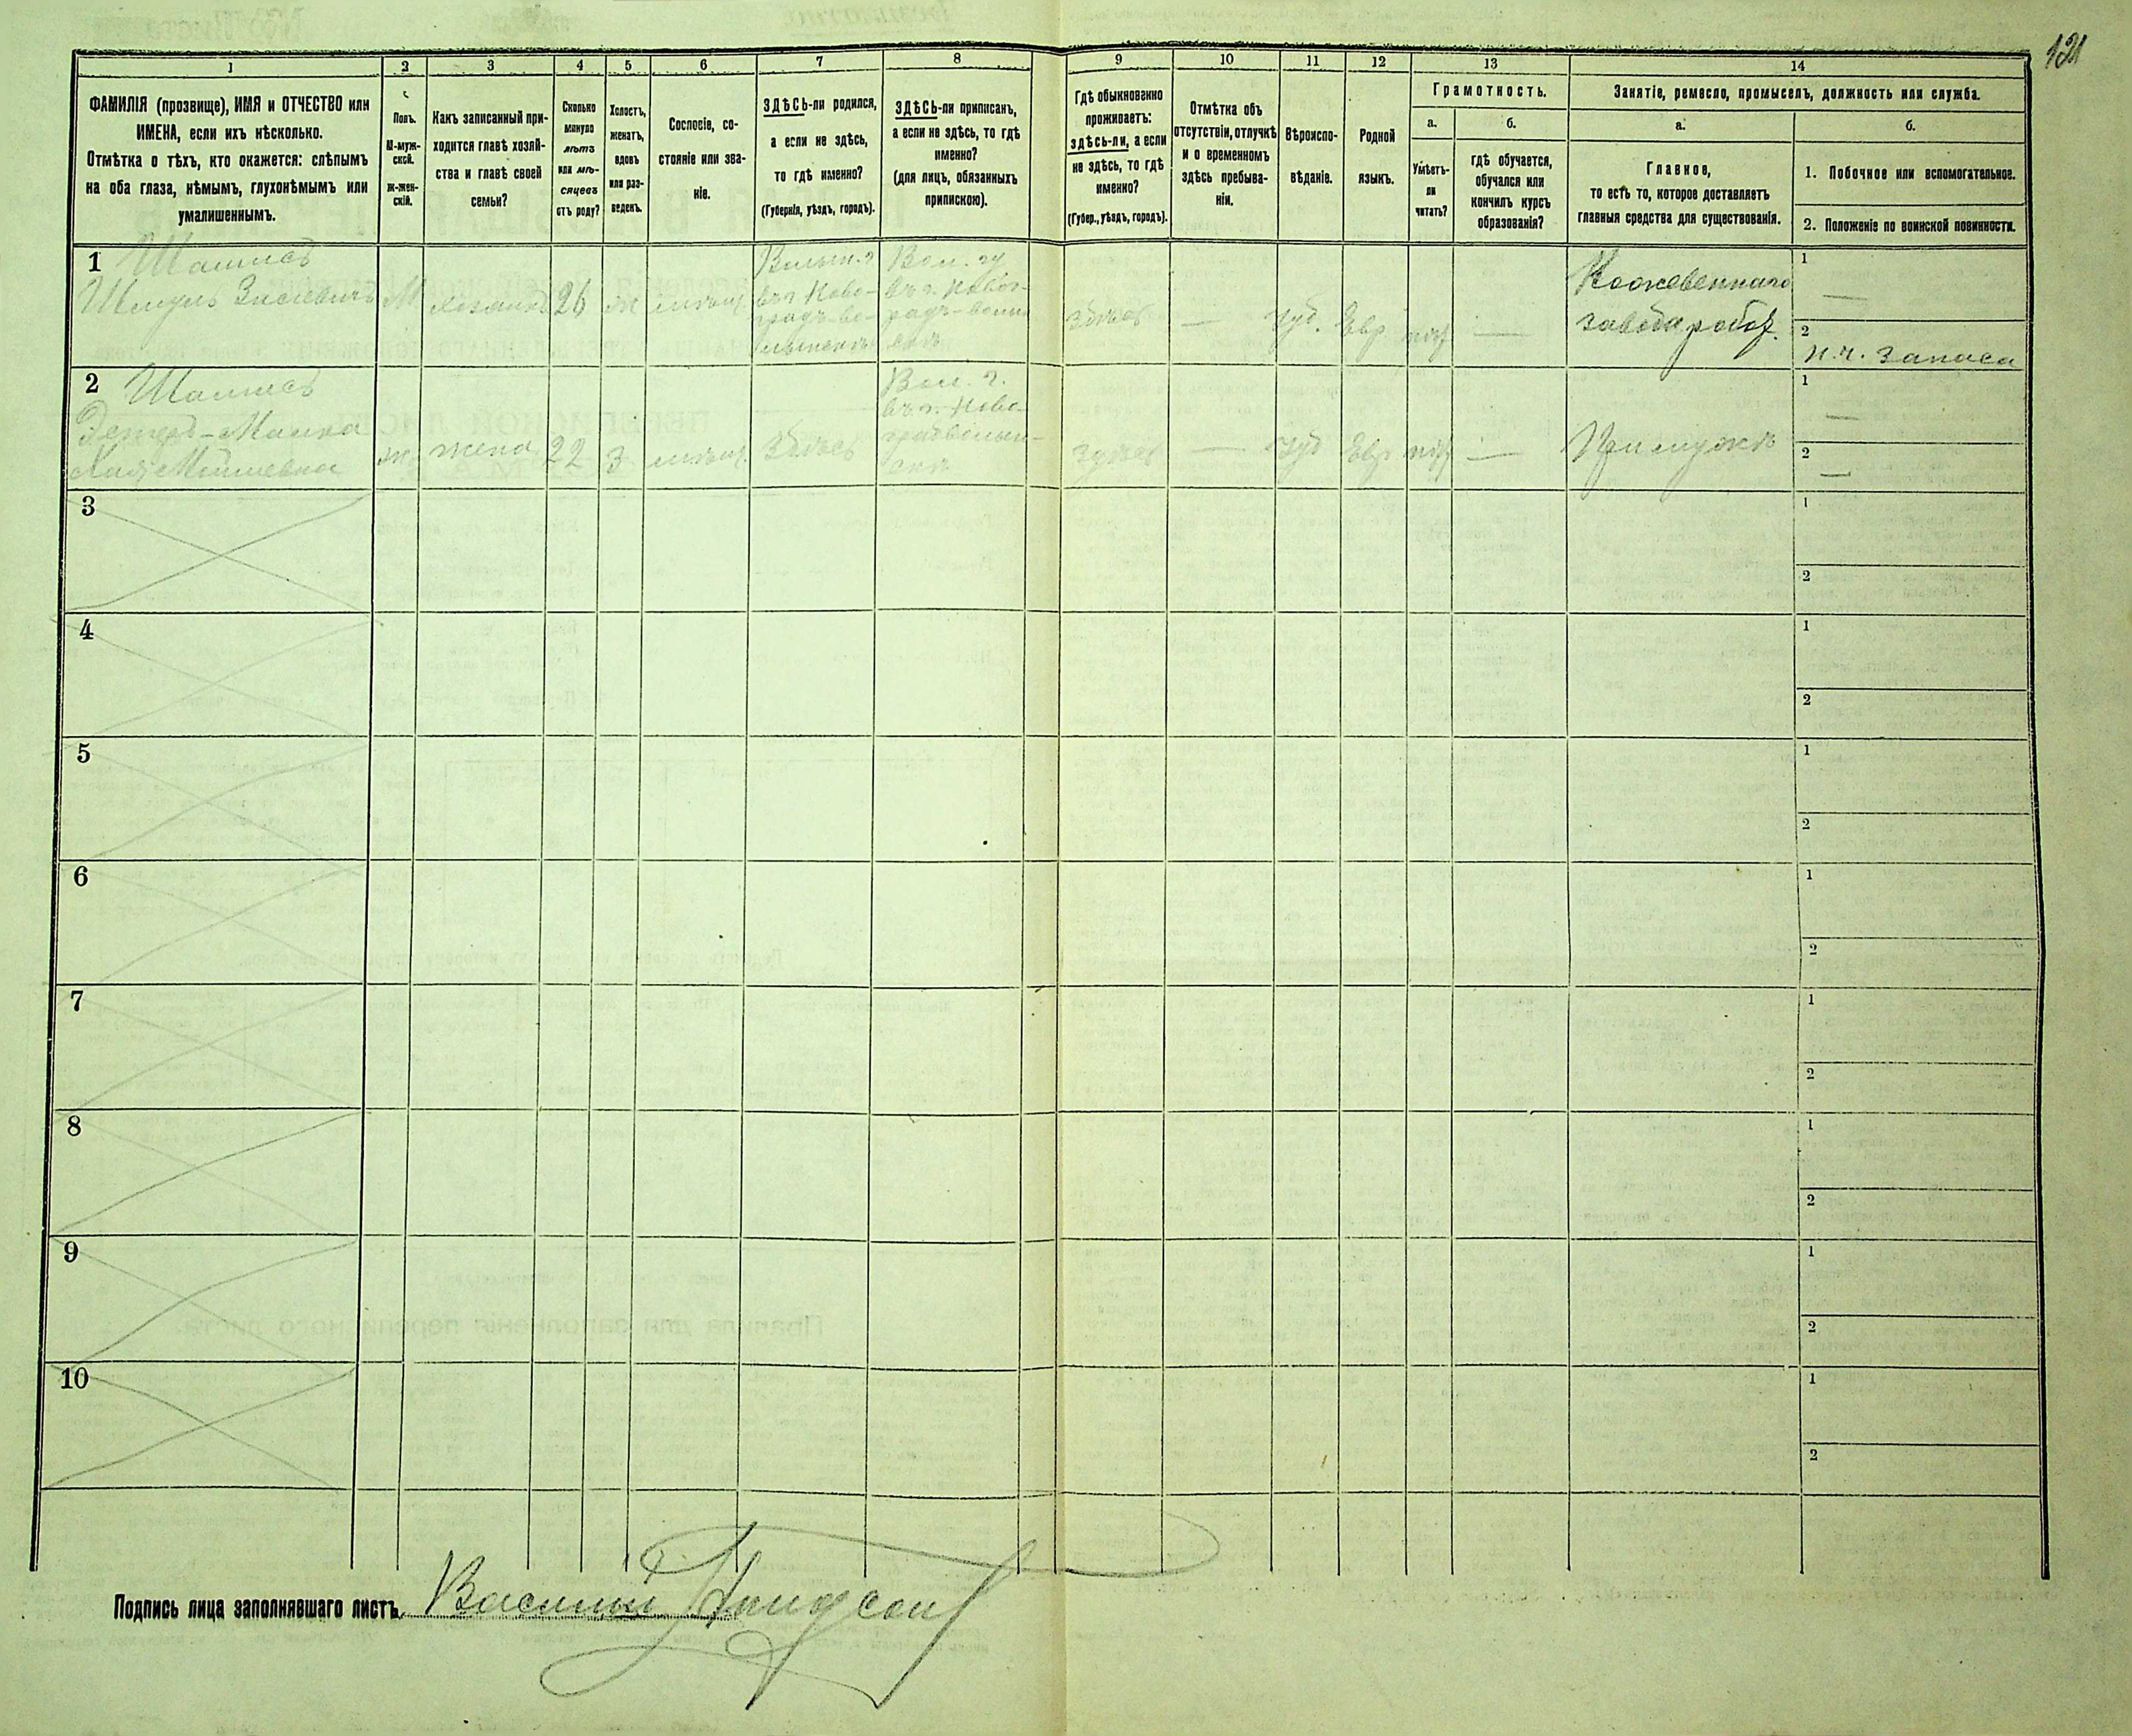 131
1
2
3
4
5
6
7
8
9
10
11
12
13
14
ФАМИЛІЯ (прозвище), ИМЯ и ОТЧЕСТВО или
ИМЕНА, если ихъ нѣсколько.
Отмѣтка о тѣхъ, кто окажется: слѣпымъ
на оба глаза, нѣмымъ, глухонѣмымъ или
умалишеннымъ.
Полъ.
М-муж-
ской.
Ж-жен-
скій.
Какъ записанный при-
ходится главѣ хозяй-
ства и главѣ своей
семьи?
Сколько
минуло
лѣтъ
или мѣ-
сяцевъ
отъ роду?
Холостъ,
женатъ,
вдовъ
или раз-
веденъ.
Сословіе, со-
стояніе или зва-
ніе.
ЗДѢСЬ-ли родился,
а если не здѣсь,
то гдѣ именно?
(Губернія, уѣздъ, городъ).
ЗДѢСЬ-ли приписанъ,
а если не здѣсь, то гдѣ
именно?
(для лицъ, обязанныхъ
припискою).
Гдѣ обыкновенно
проживаетъ:
здѣсь-ли, а если
не здѣсь, то гдѣ
именно?
(Губер., уѣздъ, городъ).
Отмѣтка объ
отсутствіи, отлучкѣ
и о временномъ
здѣсь пребыва-
ніи.
Вѣроиспо-
вѣданіе.
Родной
языкъ.
Грамотность.
а.
б.
Умѣетъ-
ли
читать?
гдѣ обучается,
обучался или
кончилъ курсъ
образованія?
Занятіе, ремесло, промыселъ, должность или служба.
а.
б.
Главное,
то есть то, которое доставляетъ
главныя средства для существованія.
1. Побочное или вспомогательное.
2. Положеніе по воинской повинности.
1
Шамисъ
Шмуль
М
хозяинъ
26
ж
мѣщ.
Волын. г
въ г. Ново-
градъ-во-
лынскѣ
Вол. гу
въ г. Новог-
радъ-волын
скѣ
здѣсь
—
Іуд.
Евр
нѣт
—
Кожевеннаго
завода рабоч.
1
—
2
н.ч. запаса
2
Шамисъ
Эстеръ-Малка
Хая Мошевна
ж.
жена
22
З
мѣщ.
Здѣсь
Вол. г.
въ г. Ново-
градволын-
скѣ
здѣсь
—
Іуд
Евр
нѣт
—
При мужѣ
1
—
2
—
3
1
2
4
1
2
5
1
2
6
1
2
7
1
2
8
1
2
9
1
2
10
1
2
Подпись лица заполнявшаго листъ. Василий